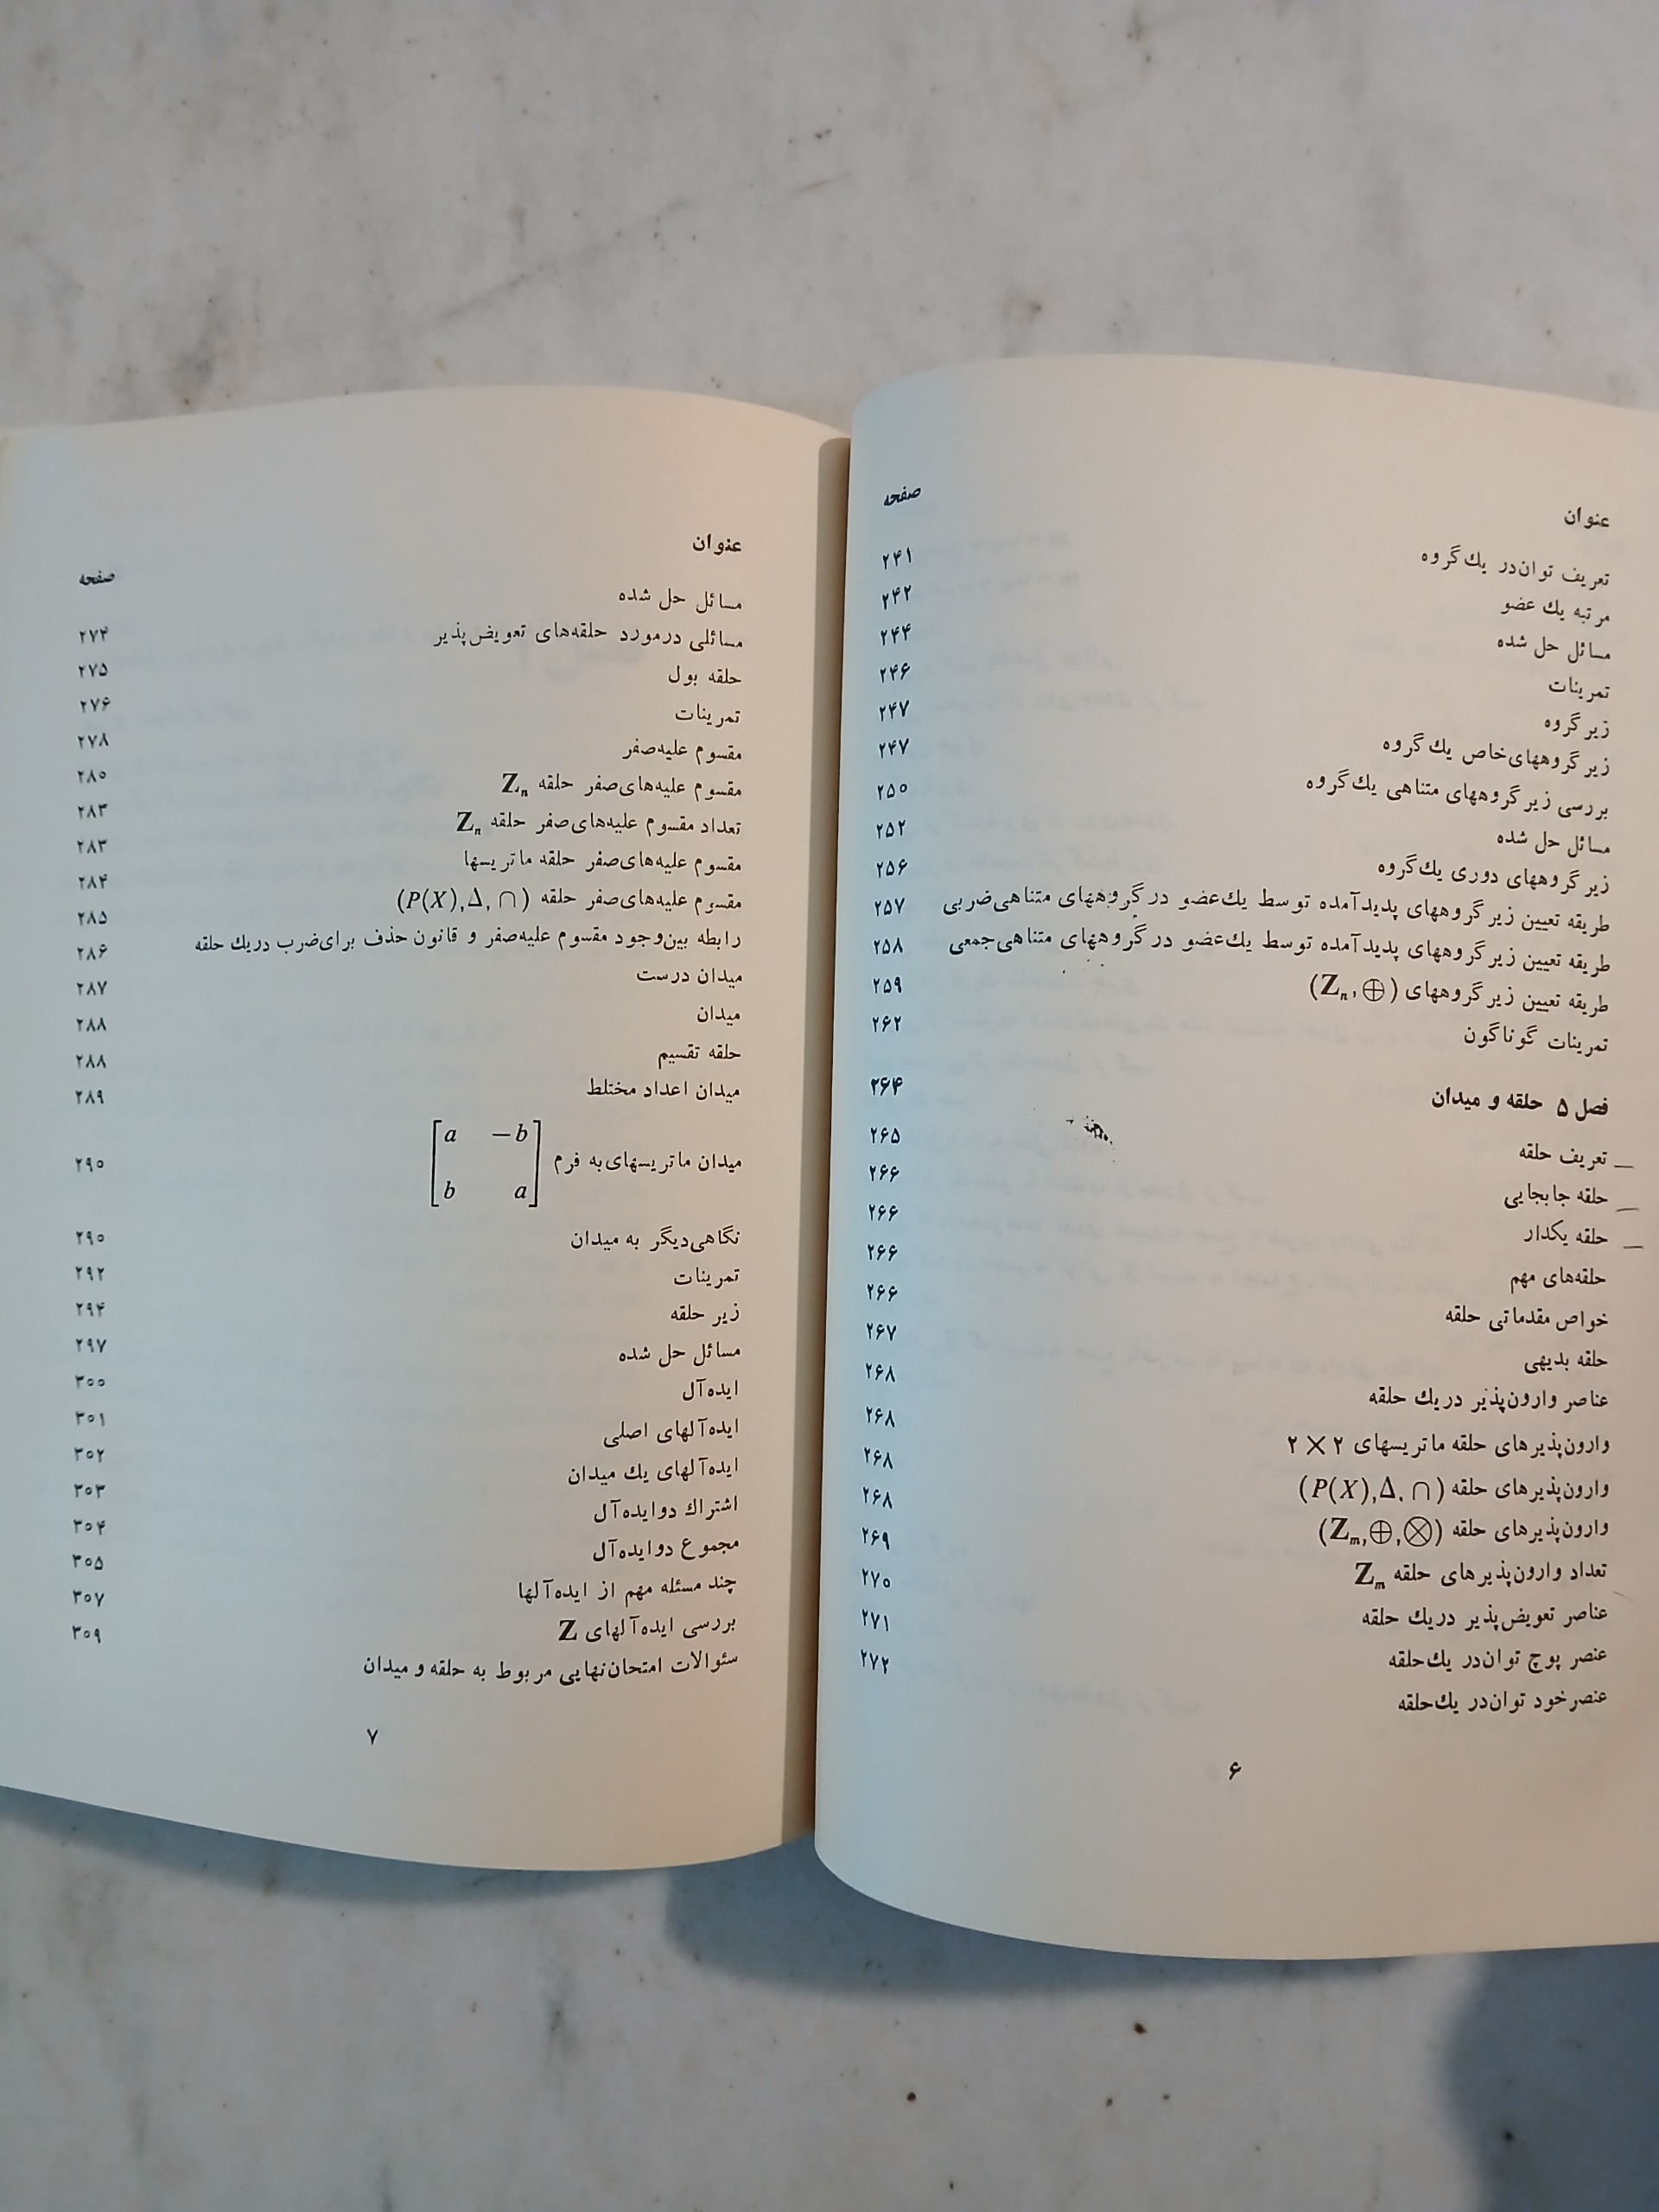 عنوان صفحه
تعریف توان در یك گروه ۲۴۱
مرتبه یك عضو ۲۴۲
مسائل حل شده ۲۴۴
تمرینات ۲۴۶
زیر گروه ۲۴۷
زیر گروههای خاص یك گروه ۲۴۷
بررسی زیر گروههای متناهی یك گروه ۲۵۰
مسائل حل شده ۲۵۲
زیر گروههای دوری یك گروه ۲۵۶
طریقه تعیین زیر گروههای پدید آمده توسط یك عضو در گروههای متناهی ضربی ۲۵۷
طریقه تعیین زیر گروههای پدید آمده توسط یك عضو در گروههای متناهی جمعی ۲۵۸
طریقه تعیین زیر گروههای (Zₙ, ⊕) ۲۵۹
تمرینات گوناگون ۲۶۲
فصل ۵ حلقه و میدان ۲۶۴
تعریف حلقه ۲۶۵
حلقه جابجایی ۲۶۶
حلقه یکدار ۲۶۶
حلقه‌های مهم ۲۶۶
خواص مقدماتی حلقه ۲۶۶
حلقه بدیهی ۲۶۷
عناصر وارون‌پذیر در یك حلقه ۲۶۸
وارون‌پذیرهای حلقه ماتریسهای ۲ × ۲ ۲۶۸
وارون‌پذیرهای حلقه (P(X), Δ, ∩) ۲۶۸
وارون‌پذیرهای حلقه (Zₘ, ⊕, ⊗) ۲۶۸
تعداد وارون‌پذیرهای حلقه Zₘ ۲۶۹
عناصر تعویض‌پذیر در یك حلقه ۲۷۰
عنصر پوچ توان در یك حلقه ۲۷۱
عنصر خود توان در یك حلقه ۲۷۲
۶
عنوان صفحه
مسائل حل شده ۲۷۴
مسائلی در مورد حلقه‌های تعویض‌پذیر ۲۷۵
حلقه بول ۲۷۶
تمرینات ۲۷۸
مقسوم علیه صفر ۲۸۰
مقسوم علیه‌های صفر حلقه Zₙ ۲۸۳
تعداد مقسوم علیه‌های صفر حلقه Zₙ ۲۸۳
مقسوم علیه‌های صفر حلقه ماتریسها ۲۸۴
مقسوم علیه‌های صفر حلقه (P(X), Δ, ∩) ۲۸۵
رابطه بین وجود مقسوم علیه صفر و قانون حذف برای ضرب در یك حلقه ۲۸۶
میدان درست ۲۸۷
میدان ۲۸۸
حلقه تقسیم ۲۸۸
میدان اعداد مختلط ۲۸۹
میدان ماتریسهای به فرم [a −b
b a] ۲۹۰
نگاهی دیگر به میدان ۲۹۰
تمرینات ۲۹۲
زیر حلقه ۲۹۴
مسائل حل شده ۲۹۷
ایده‌آل ۳۰۰
ایده‌آلهای اصلی ۳۰۱
ایده‌آلهای یك میدان ۳۰۲
اشتراك دو ایده‌آل ۳۰۳
مجموع دو ایده‌آل ۳۰۴
چند مسئله مهم از ایده‌آلها ۳۰۵
بررسی ایده‌آلهای Z ۳۰۷
سئوالات امتحان نهایی مربوط به حلقه و میدان ۳۰۹
۷